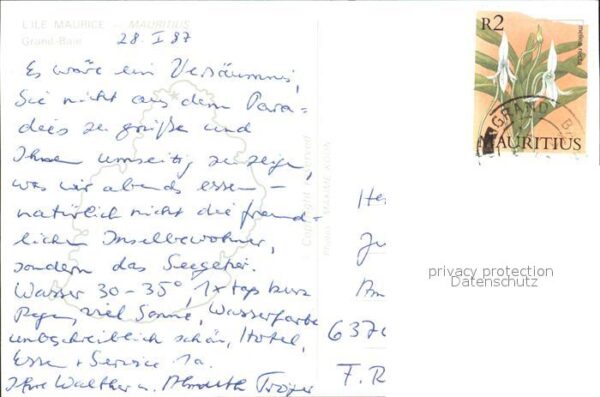 L'ILE MAURICE – MAURITIUS
Grand-Baie
28. I 87
Es wäre ein Versäumnis,
Sie nicht aus dem Para=
dies zu grüßen und
Ihnen umseitig zu zeigen,
was wir abends essen –
natürlich nicht die freund=
lichen Inselbewohner,
sondern das Seegetier.
Wasser 30-35°, 1x tags kurz
Regen, viel Sonne, Wasserfarbe
unbeschreiblich schön, Hotel,
Essen + Service 1a.
Ihre Walther u. Almuth
R2
MAURITIUS
GRAND B
637
F. R
privacy protection
Datenschutz